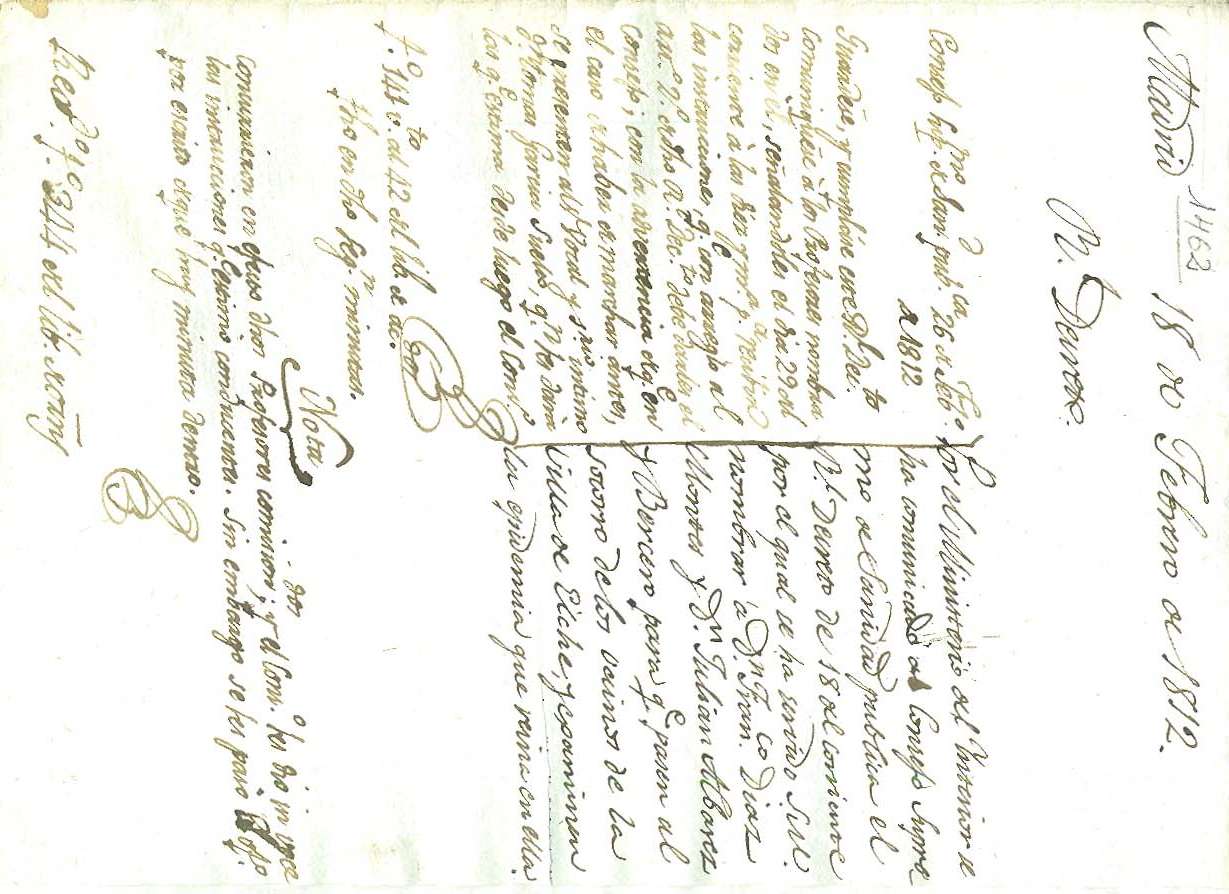 Madrid 18 de Febrero de 1812.
1462
R. Decreto.
Por el Ministerio del Interior se
ha comunicado al Consejo Supre
mo de Sanidad publica el
Rl. Decreto de 18 del corriente
por el qual se ha servido S.M.
nombrar á Dn. Franco. Diaz
Montes y Dn. Julian Albarez
y Bercero para qe. pasen al
socorro de los vecinos de la
Villa de Elche, y exâminen
la epidemia que reina en ella.
Consejo Spmo. de San. pubca. 26 de Febo.
de 1812
Guardese, y cumplase este Rl. Decto.
comuniquese á los Profesores nombra
dos en él, señalandoles el dia 29 del
corriente á las diez
las instrucciones, qe. con arreglo al
art. 2º. de dho. Rl. Decto. debe darles el
Consejo; con la advertencia de qe. en
el caso de haber de marchar antes,
se presenten al Vocal y Srio. intimo
Dn. Garcia Suelto, qn. les dará
las qe. estima desde luego el Consº.
fº. 148 vto. del 42 del lib. de ac.
fho en dho Regn. minutas.
Nota
Comunicaron en efecto dhos Profesores comisiondos; y el Conso. les dió in voce
las instrucciones qe. estimó conducentes. Sin embargo se les pasó
por escrito de que hay minuta dentro.
Regdo. fº. 344 del lib.